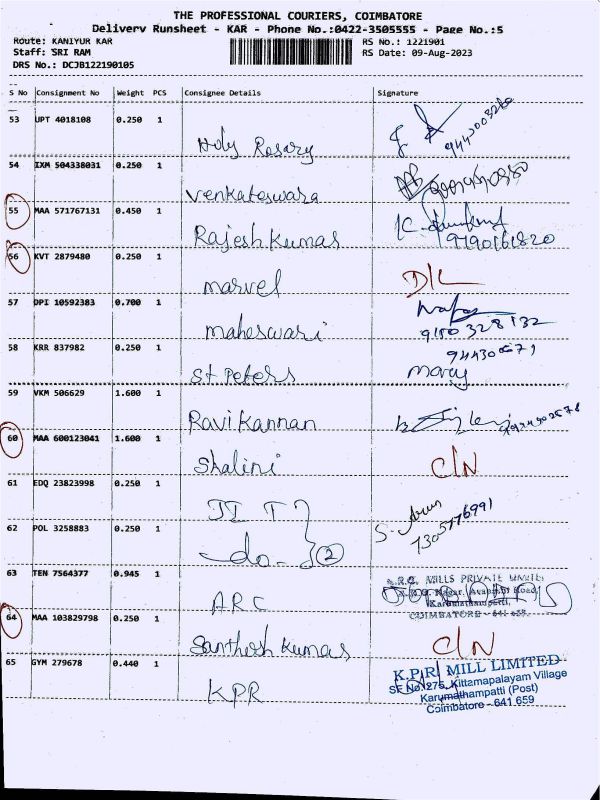 THE PROFESSIONAL COURIERS, COIMBATORE
Delivery Runsheet - KAR - Phone No.:0422-3505555 - Page No.:5
Route: KANIYUR KAR
RS No.: 1221901
Staff: SRI RAM
RS Date: 09-Aug-2023
DRS No.: DCJB122190105
S No Consignment No Weight PCS Consignee Details Signature
53 UPT 4018108 0.250 1
Holy Rosary
54 IXM 504338031 0.250 1
Venkateswara
55 MAA 571767131 0.450 1
Rajesh Kumar
56 KVT 2879480 0.250 1
marvel D/L
57 DPI 10592383 0.700 1
maheswari
58 KRR 837982 0.250 1
St. Peters mary
59 VKM 506629 1.600 1
Ravi Kannan
60 MAA 600123041 1.600 1
Shalini C/N
61 EDQ 23823998 0.250 1
S. Arun
62 POL 3258883 0.250 1
-do- 2
63 TEN 7564377 0.945 1
MILLS PRIVATE
Karumathampatti,
COIMBATORE - 641 659
ARC
64 MAA 103829798 0.250 1
Santhosh Kumar C/N
65 GYM 279678 0.440 1
K.P.R. MILL LIMITED
SF No. 275, Kittamapalayam Village
Karumathampatti (Post)
Coimbatore - 641 659
KPR